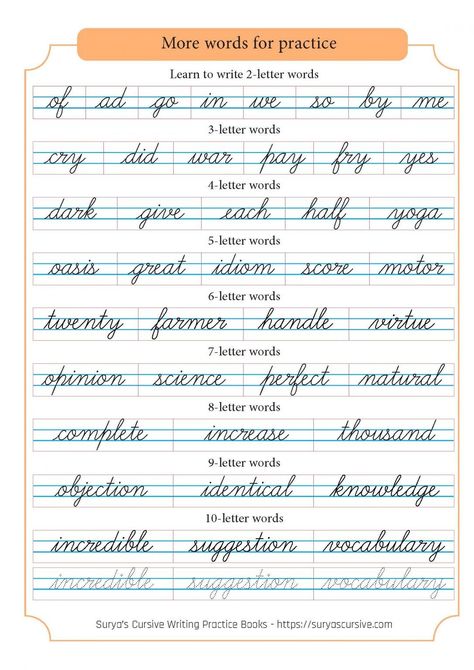 More words for practice
Learn to write 2-letter words
of ad go in we so by me
3-letter words
cry did war pay fry yes
4-letter words
dark give each half yoga
5-letter words
oasis great idiom score motor
6-letter words
twenty farmer handle virtue
7-letter words
opinion science perfect natural
8-letter words
complete increase thousand
9-letter words
objection identical knowledge
10-letter words
incredible suggestion vocabulary
incredible suggestion vocabulary
Surya's Cursive Writing Practice Books - https://suryascursive.com